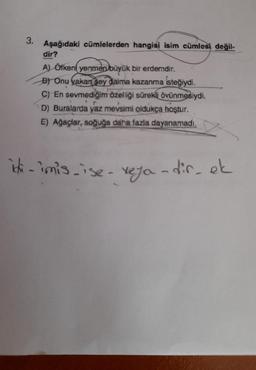 3. Aşağıdaki cümlelerden hangisi isim cümlesi değil-
dir?
A) Öfkeni yenmen büyük bir erdemdir.
B) Onu yakan şey daima kazanma isteğiydi.
C) En sevmediğim özelliği sürekli övünmesiydi.
D) Buralarda yaz mevsimi oldukça hoştur.
E) Ağaçlar, soğuğa daha fazla dayanamadı.
idi - imiş - ise - veya - dir - ek